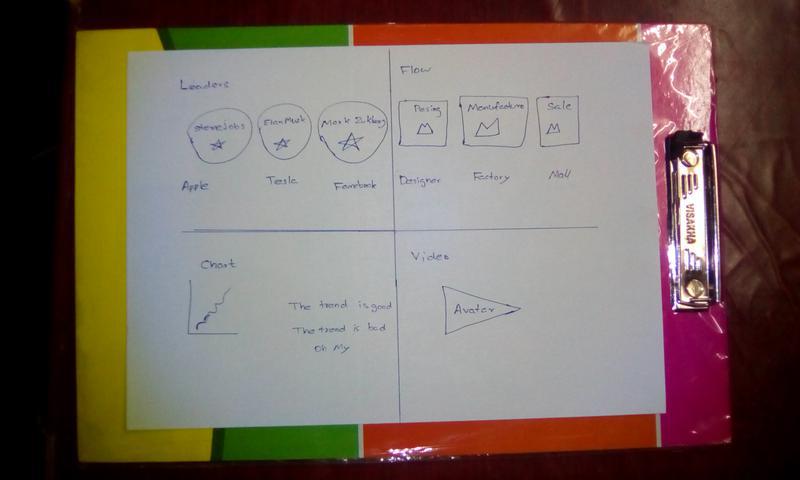 Leaders
Steve Jobs
Elon Musk
Mark Zukberg
Apple
Tesla
Facebook
Flow
Desing
Menufacture
Sale
Designer
Factory
Mall
Chart
The trend is good
The trend is bad
Oh My
Video
Avatar
VISAKHA